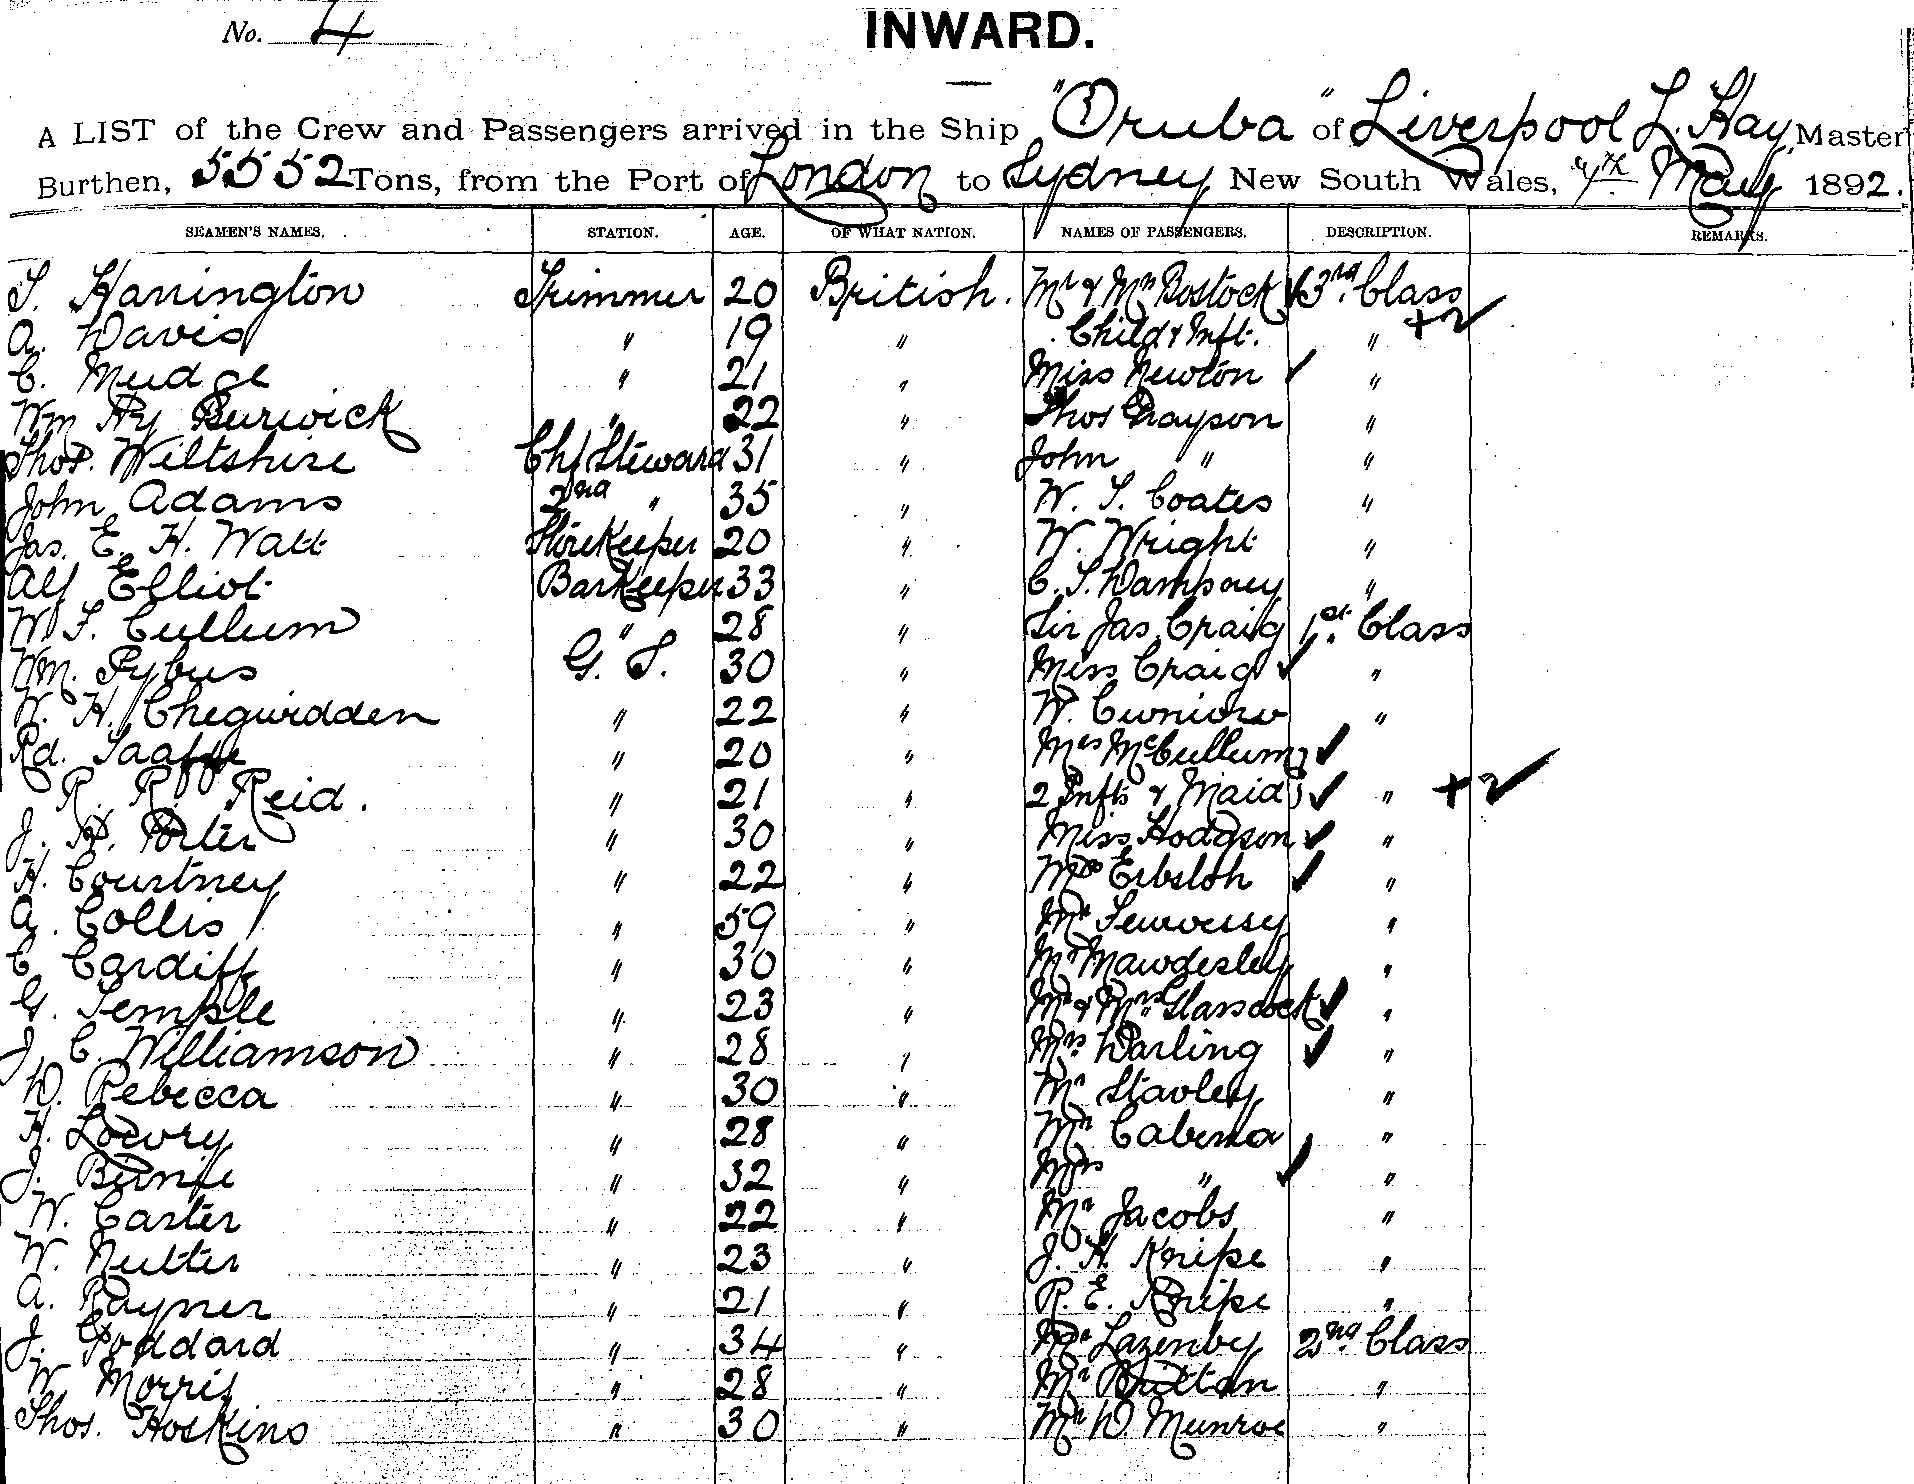 No. 4
INWARD.
A LIST of the Crew and Passengers arrived in the Ship "Oruba" of Liverpool L. Hay, Master
Burthen, 5552 Tons, from the Port of London to Sydney New South Wales, May 1892.
SEAMEN'S NAMES. STATION. AGE. OF WHAT NATION. NAMES OF PASSENGERS. DESCRIPTION. REMARKS.
S. Harrington Trimmer 20 British. Mr & Mrs Bostock ✓ 3rd Class
A. Davis " 19 " Child & Inft. " +2 ✓
C. Mudge " 21 " Miss Newton ✓ "
Wm Hy Burwick " 22 " Thos Grayson "
Thos. Wiltshire Chf Steward 31 " John " "
John Adams 2nd " 35 " W. S. Coates "
Jas. E. H. Watt Storekeeper 20 " W. Wright "
Alf Elliot Barkeeper 33 " C. S. Dampney "
W. F. Cullum " 28 " Sir Jas. Craig 1st. Class
Wm. Pybus G. S. 30 " Miss Craig ✓ "
W. H. Chegwidden " 22 " W. "
Rd. Taaffe " 20 " Mrs McCullum ✓
R. R. Reid. " 21 " 2 Infts & Maid ✓ " +2 ✓
J. H. Porter " 30 " Miss Hodgson ✓ "
H. Courtney " 22 " Mrs Erbsloh ✓ "
A. Collis " 59 " Mr "
C. Cardiff " 30 " Mr Mawdesley "
G. Temple " 23 " Mr & Mrs Glasscock ✓ "
J. C. Williamson " 28 " Mrs Darling ✓ "
D. Rebecca " 30 " Mr Stavley "
H. Lowry " 28 " Mr "
J. " 32 " Mrs " ✓ "
W. Carter " 22 " Mr Jacobs "
W. Nutter " 23 " J. H. Knipe "
A. Rayner " 21 " R. E. Knipe "
J. Goddard 34 " Mr Lazenby 2nd. Class
W. Morris " 28 " Mr Britton "
Thos. Hoskins " 30 " Mr D. Munroe "